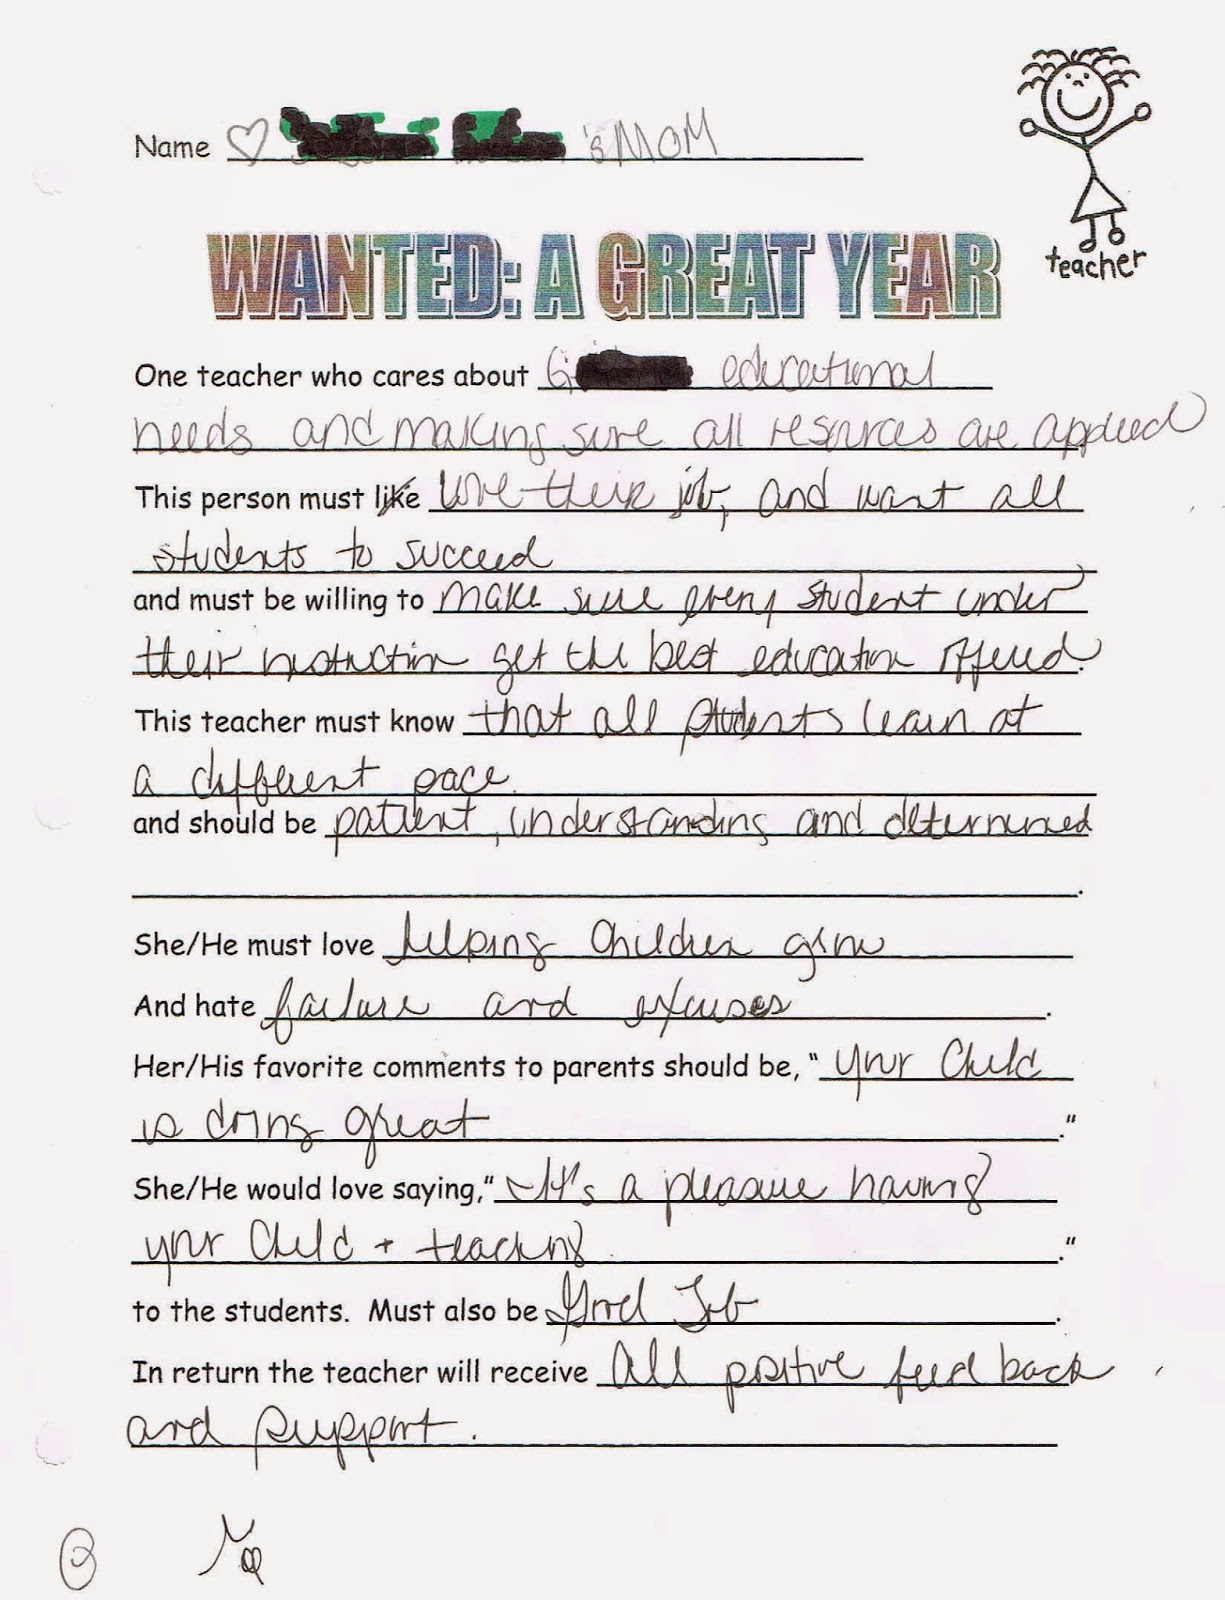 Name 's MOM
teacher
WANTED: A GREAT YEAR
One teacher who cares about G educational
needs and making sure all resources are applied
This person must like love their job, and want all
students to succeed
and must be willing to make sure every student under
their instruction get the best education offered.
This teacher must know that all students learn at
a different pace.
and should be patient, understanding and determined
.
She/He must love helping children grow
And hate failure and excuses .
Her/His favorite comments to parents should be, "your Child
is doing great ."
She/He would love saying,"It's a pleasure having
your Child + teaching ."
to the students. Must also be Good Job .
In return the teacher will receive all positive feed back
and support.